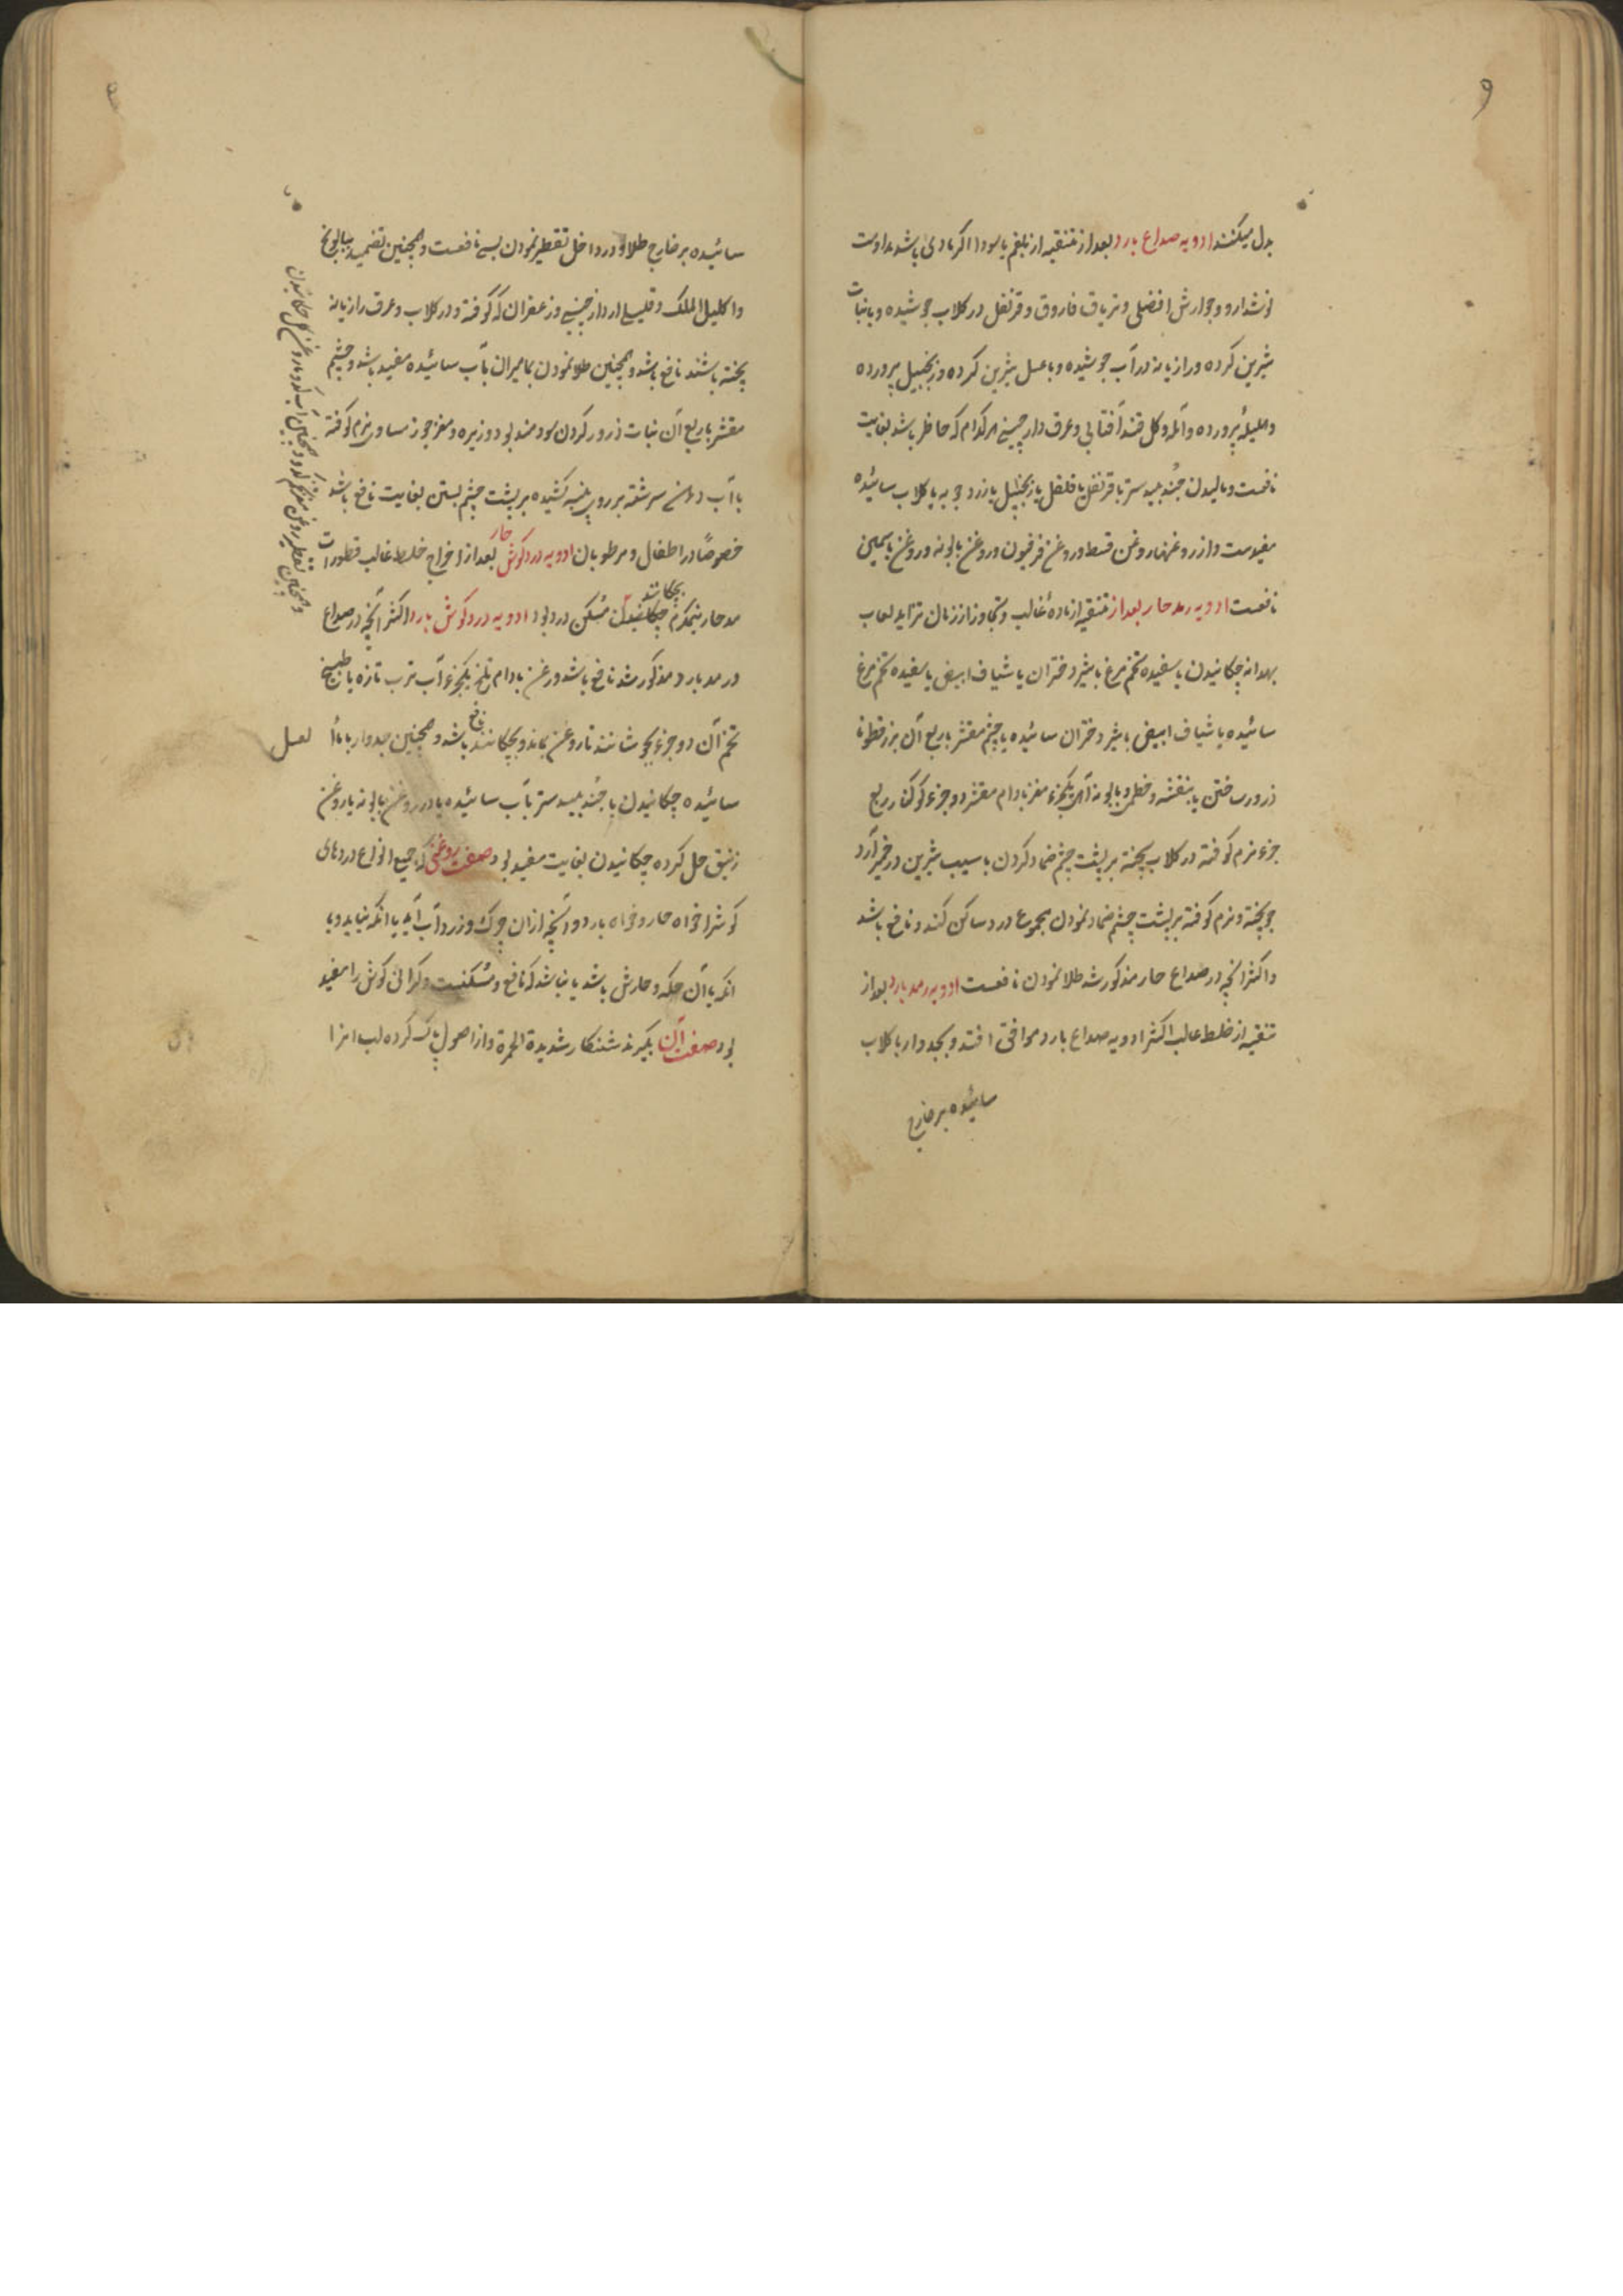 و
بدل میکنند ادویه صداع بارد بعد از تنقیه از بلغم یا سودا اکر مادی باشد مداومت
نوشدارو و جوارش افضلی و تریاق فاروق و قرنفل در کلاب جوشیده و بانبات
شیرین کرده و رازیانه در آب جوشیده و با عسل شیرین کرده و زنجبیل پرورده
و هلیلهٔ پرورده و آمله و کل قند آفتابی و عرق دارچینی هر کدام که حاضر باشد بغایت
نافعست و مالیدن جند بیدستر با قرنفل یا فلفل یا زنجبیل یا زرد جوبه با کلاب سائیده
مفیدست و از روغنها روغن قسط و روغن فرفیون و روغن بابونه و روغن یاسمین
نافعست ادویه رمد حار بعد از تنقیه از مادهٔ غالب و تجاوز از زمان تزاید لعاب
بهدانه چکانیدن یا سفیده تخم مرغ با شیر دختران یا شیاف ابیض یا سفیده تخم مرغ
سائیده یا شیاف ابیض با شیر دختران سائیده یا چشم مقشر با ربع آن بزرقطونا
ذرور ساختن یا بنفشه و خطمی و بابونه از هر یکجزء مغز بادام مقشر دو جزء کوکنار ربع
جزء نرم کوفته در کلاب پخته بر پشت چشم ضماد کردن یا سیب شیرین در خمیر آرد
جو پخته و نرم کوفته بر پشت چشم ضماد نمودن مجموع درد ساکن کند و نافع باشد
و اکثر انچه در صداع حار مذکور شد طلا نمودن نافعست ادویه رمد بارد بعد از
تنقیه از خلط غالب اکثر ادویه صداع بارد موافق افتد و جدوار با کلاب
سائیده بر خارج
سائیده بر خارج طلا و در داخل تقطیر نمودن بسی نافعست و همچنین تضمید ببابونج
و اکلیل الملک و قلیلی از دارچینی و زعفران که کوفته و در کلاب و عرق رازیانه
پخته باشند نافع باشد و همچنین طلا نمودن مامیران بآب سائیده مفید باشد و چشم
مقشر با ربع آن نبات ذرور کردن سودمند بود و زیره و مغز جوز مساوی نرم کوفته
با آب دهن سرشته بر روی پنبه کشیده بر پشت چشم بستن بغایت نافع باشد
خصوصًا در اطفال و مرطوبان ادویه درد کوش حار بعد از اخراج خلط غالب قطورات
رمد حار نیمکرم چکانیدن بچکانند مسکن درد بود ادویه درد کوش بارد اکثر آنچه در صداع
و رمد بارد مذکور شد نافع باشد و روغن بادام تلخ یکجزء آب ترب تازه یا طبیخ
تخم آن دو جزء بجوشانند تا روغن بماند و بچکانند نافع باشد و همچنین جدوار با ماء العسل
سائیده چکانیدن یا جند بیدستر بآب سائیده یا در روغن بابونه یا روغن
زنبق حل کرده چکانیدن بغایت مفید بود صفت روغنی که جمیع انواع دردهای
کوش را خواه حار و خواه بارد و آنچه از آن چرک و زرداب آید یا انکه نیاید و یا
انکه با آن حکه و خارش باشد یا نباشد که نافع و مسکنست و کرانی کوش را مفید
بود صفت آن بکیرند شنکار شدیدة الحمرة و از اصول پاک کرده لب انرا